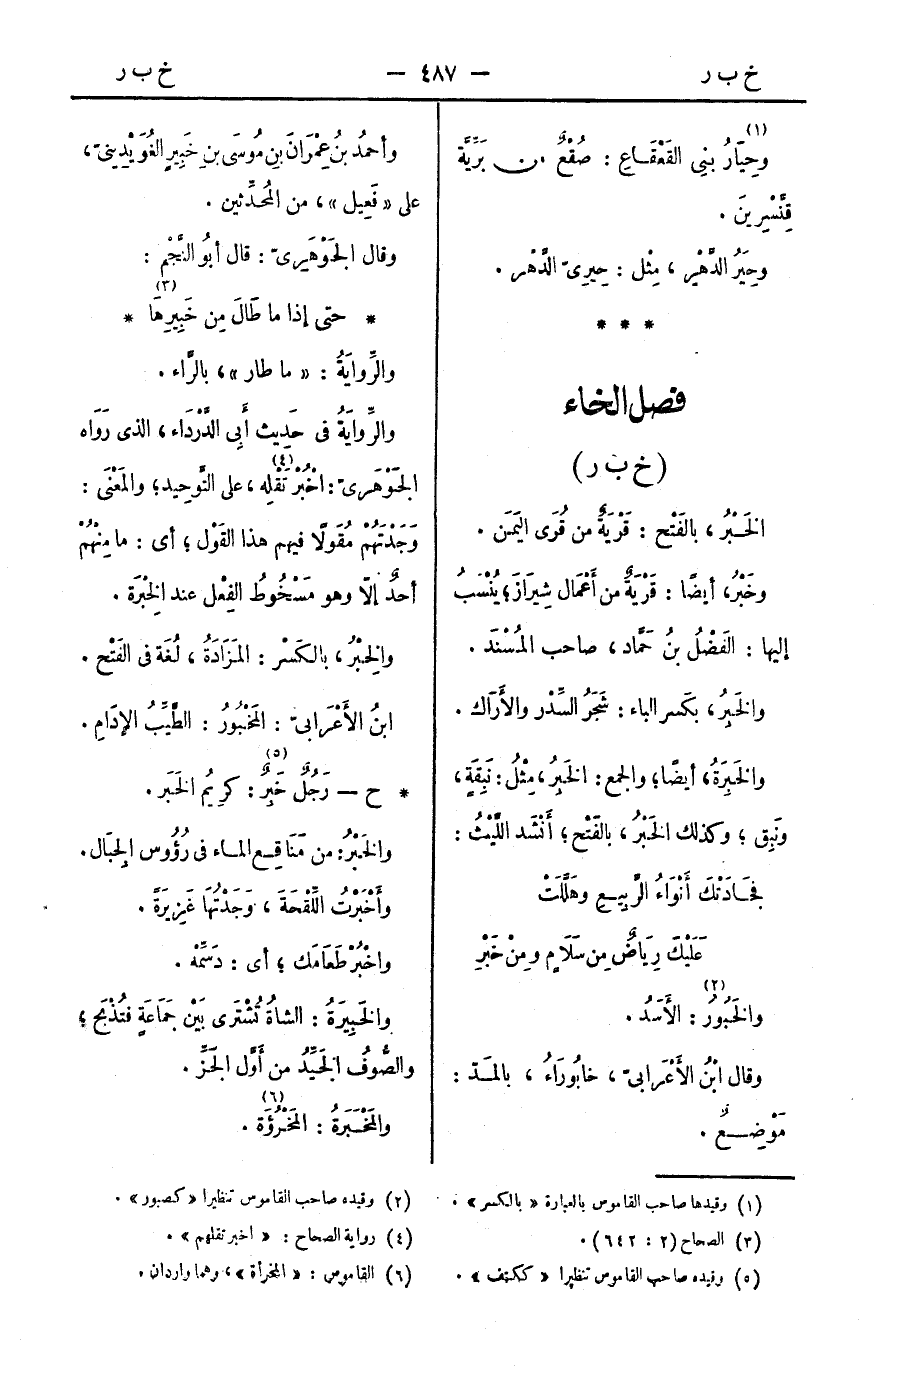 خ ب ر
— ٤٨٧ —
خ ب ر
(١)
وحِيَارُ بنِى القَعْقَاعِ : صُقْعٌ من بَرِّيَّة
قِنَّسْرِينَ .
وحِيَرُ الدَّهْرِ ، مِثْل : حِيرِىّ الدَّهْر .
* * *
فصل الخاء
( خ ب ر )
الخَبْرُ ، بالفَتْح : قَرْيَةٌ من قُرَى اليَمَن .
وخَبْرُ، أيضًا : قَرْيَةٌ من أَعْمَال شِيرَازَ؛ يُنْسَبُ
إليها : الفَضْلُ بنُ حَمَّاد ، صاحب المُسْنَد .
والخَبِرُ ، بكسر الباء : شَجَرُ السِّدْر والأَرَاك .
والخَبِرَةُ، أيضًا؛ والجمع : الخَبِرُ ، مِثْلُ : نَبِقَةٍ،
ونَبِق ؛ وكذلك الخَبْرُ ، بالفَتْح ؛ أَنْشَد اللَّيْثُ :
فجَادَتْكَ أَنْوَاءُ الرَّبِيعِ وهَلَّلَتْ
عَلَيْكَ رِيَاضٌ مِن سَلَامٍ ومِنْ خَبْرِ
(٢)
والخَبُورُ : الأَسَدُ .
وقال ابْنُ الأَعْرَابىّ ، خابُورَاءُ ، بالمَدّ :
مَوْضِعٌ .
وأحمدُ بنُ عِمْرَانَ بنِ مُوسَى بنِ خَبِيرٍ الغُوَيْدِينىّ،
على « فَعِيل » ، من المُحَدِّثين .
وقال الجَوْهَرِىّ : قال أبُو النَّجْم :
(٣)
* حتى إذا ما طَالَ مِن خَبِيرِهَا *
والرِّوايَةُ : « ما طار » ، بالرَّاء .
والرِّوايَةُ فى حَدِيث أَبِى الدَّرْدَاء ، الذى رَوَاه
(٤)
الجَوْهَرِىّ : اخْبُرْ تَقْلِه ، على التَّوحِيد؛ والمَعْنَى :
وَجَدْتُهُمْ مَقُولًا فيهم هذا القَوْل ؛ أى : ما مِنْهُمْ
أحدٌ إلَّا وهو مَسْخُوطُ الفِعْل عند الخِبْرَة .
والخِبْرُ ، بالكَسْر : المَزَادَةُ ، لُغَة فى الفَتْح .
ابنُ الأَعْرَابىّ : المَخْبُورُ : الطَّيِّبُ الإدَامِ .
(٥)
* ح — رَجُلٌ خَبِرٌ : كريمُ الخَبَر .
والخَبْرُ: من مَنَاقِع الماء فى رُؤُوس الجِبَال .
وأَخْبَرْتُ اللَّقْحَةَ ، وَجَدْتُهَا غَزِيرَةً .
واخْبُرْ طَعَامَك ؛ أى : دَسِّمْهُ .
والخَبِيرَةُ : الشاةُ تُشْتَرَى بَيْنَ جَمَاعَةٍ فتُذْبَح ؛
والصُّوفُ الجَيِّدُ من أَوَّل الجَزّ .
(٦)
والمَخْبَرَةُ : المَخْرُؤَة .
(١) وقيدها صاحب القاموس بالعبارة « بالكسر » .
(٢) وقيده صاحب القاموس تنظيرا « كصبور » .
(٣) الصحاح (٢ : ٦٤٢) .
(٤) رواية الصحاح : « اخبر تقلهم » .
(٥) وقيده صاحب القاموس تنظيرا « ككتف » .
(٦) القاموس : « المخرأة » ، وهما واردان .